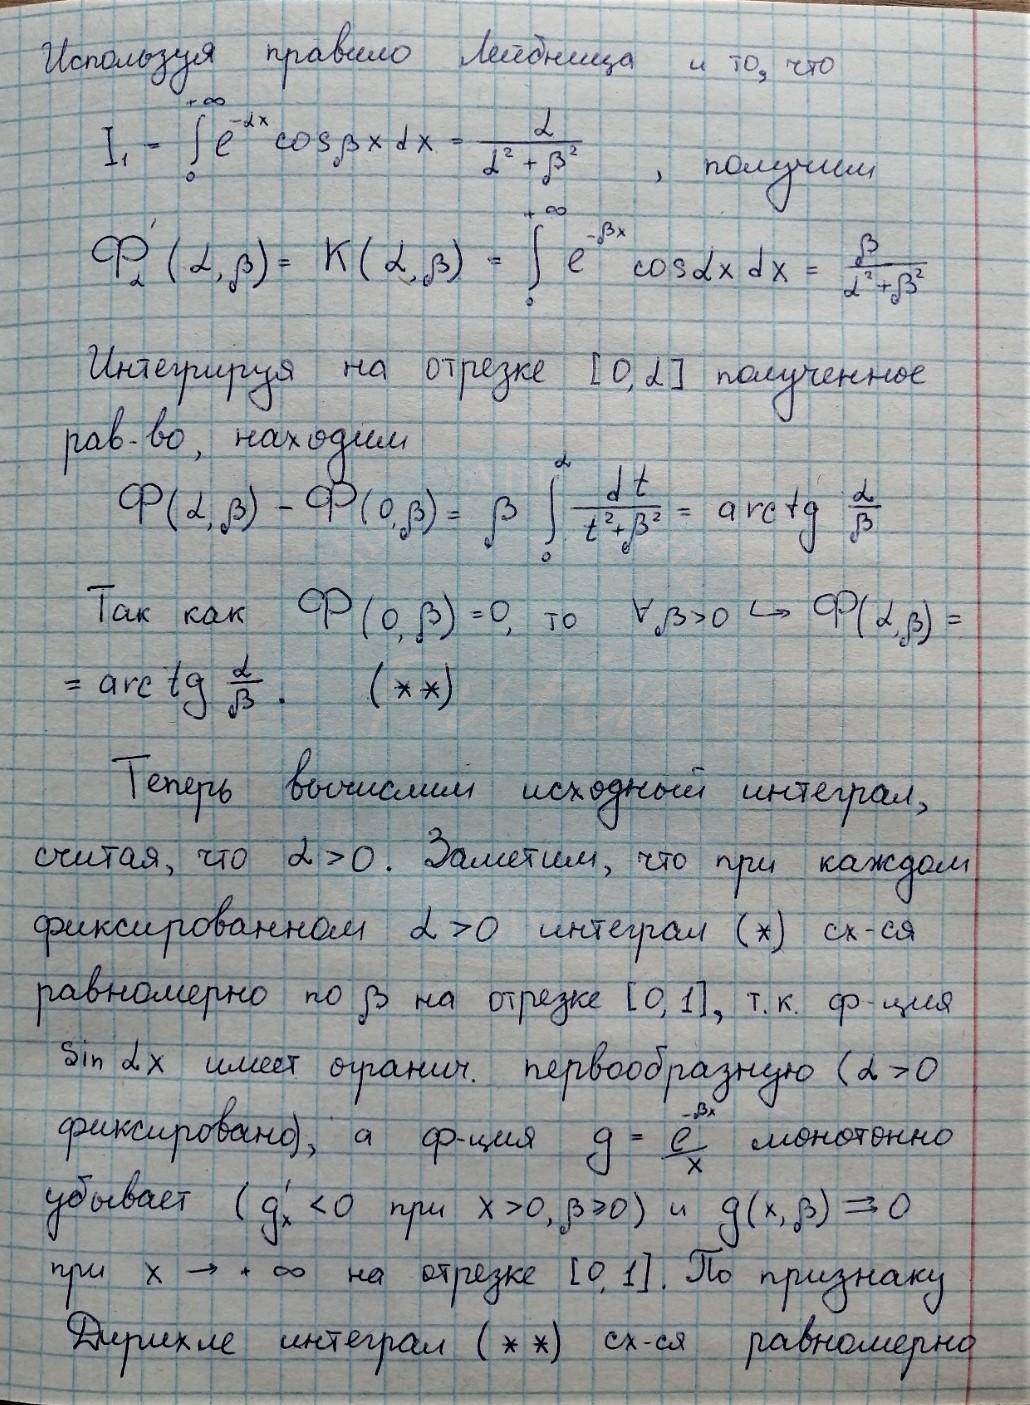 Используя правило Лейбница и то, что
I₁ = ∫₀^{+∞} e^{-αx} cosβx dx = α/(α² + β²) , получим
Φ'_α (α,β) = K(α,β) = ∫₀^{+∞} e^{-βx} cosαx dx = β/(α²+β²)
Интегрируя на отрезке [0,α] полученное
рав-во, находим
Φ(α,β) - Φ(0,β) = β ∫₀^α dt/(t²+β²) = arctg α/β
Так как Φ(0,β)=0, то ∀β>0 ↪ Φ(α,β) =
= arctg α/β. (**)
Теперь вычислим исходный интеграл,
считая, что α>0. Заметим, что при каждом
фиксированном α>0 интеграл (*) сх-ся
равномерно по β на отрезке [0,1], т.к. ф-ция
sin αx имеет огранич. первообразную (α>0
фиксировано), а ф-ция g = e^{-βx}/x монотонно
убывает (g'ₓ <0 при x>0, β≥0) и g(x,β) ⇉ 0
при x → +∞ на отрезке [0,1]. По признаку
Дирихле интеграл (**) сх-ся равномерно